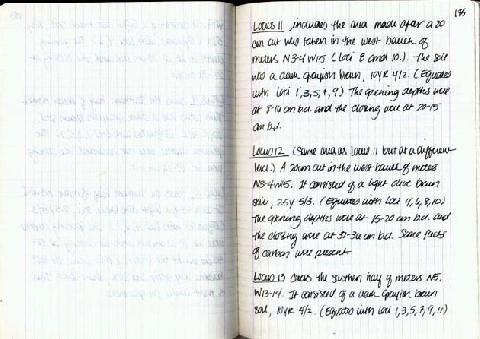 185
Locus 11, includes the area made after a 20
cm cut was taken in the west baulk of
meters N3-4 W15 (Loci 8 and 10). The soil
was a dark grayish brown, 10YR 4/2. (Equates
with loci 1, 3, 5, 7, 9.) The opening depths were
at 8-10 cm bd. and the closing were at 20-25
cm bd.
Locus 12 (same area as locus 11 but at a different
level.) A 20cm cut in the west baulk of meters
N3-4 W15. It consisted of a light olive brown
soil, 2.5Y 5/3. (Equates with loci 4, 6, 8, 10)
The opening depths were at 15-20 cm bd. and
the closing were at 35-30 cm bd. Some flecks
of carbon were present.
Locus 13 covers the southern half of meters N5
W13-14. It consisted of a dark grayish brown
soil, 10YR 4/2. (Equates with loci 1, 3, 5, 7, 9, 11)